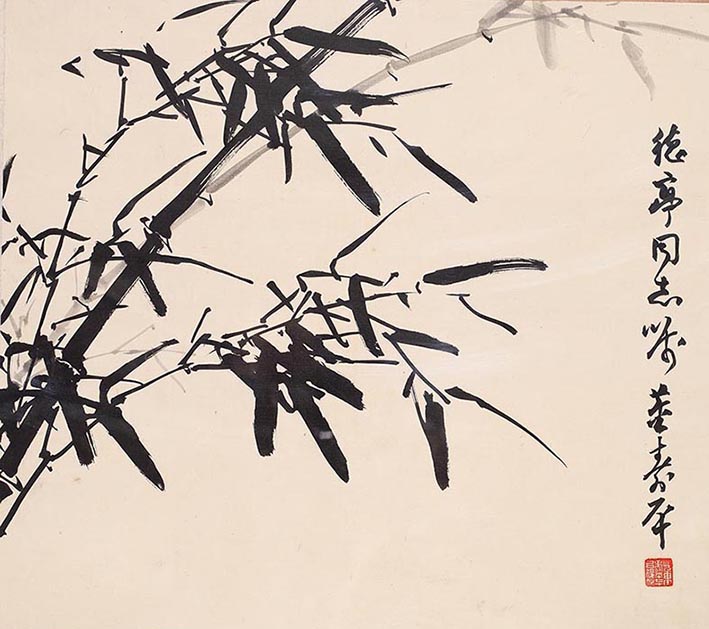 德亭同志嘱 董寿平